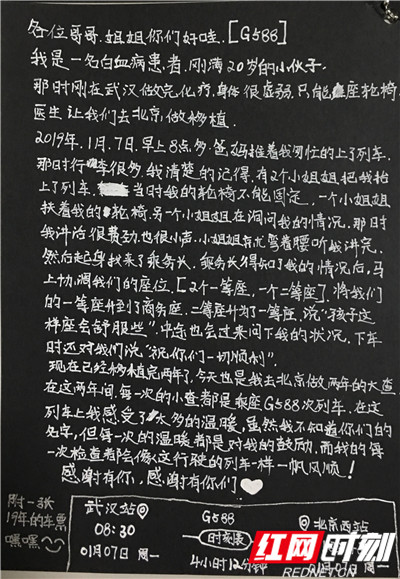 各位哥哥.姐姐你们好哇.[G588]
我是一名白血病患者.刚满20岁的小伙子.
那时刚在武汉做完化疗.身体很虚弱.只能座轮椅.
医生让我们去北京做移植.
2019年.1月.7日.早上8点多.爸妈推着我匆忙的上了列车.
那时行李很多.我清楚的记得.有2个小姐姐把我抬
上了列车.当时我的轮椅不能固定.一个小姐姐
扶着我的轮椅.另一个小姐姐在询问我的情况.那时
我讲话很费劲.也很小声.小姐姐弯着腰听我讲完.
然后起身找来了乘务长.乘务长得知了我的情况后,马
上协调我们的座位.[2个一等座,一个二等座].将我们
的一等座升到了商务座.二等座升为了一等座.说"孩子这
样座会舒服些".中途也会过来问下我的状况.下车
时还对我们说"祝你们一切顺利".
现在已经移植完两年了.今天也是我去北京做两年的大查.
在这两年间,每一次的小查都是乘座G588次列车.在这
列车上我感受了太多的温暖.虽然我不知道你们的
名字,但每一次的温暖都是对我的鼓励.而我的每
一次检查都会像这行驶的列车一样一帆风顺!
感谢有你们,感谢有你们
附一张
19年的车票
嘿嘿
武汉站
G588
北京西站
08:30
时刻表
01月07日 周一
4小时12分钟
01月07日 周一
红网时刻
REDNET.CN